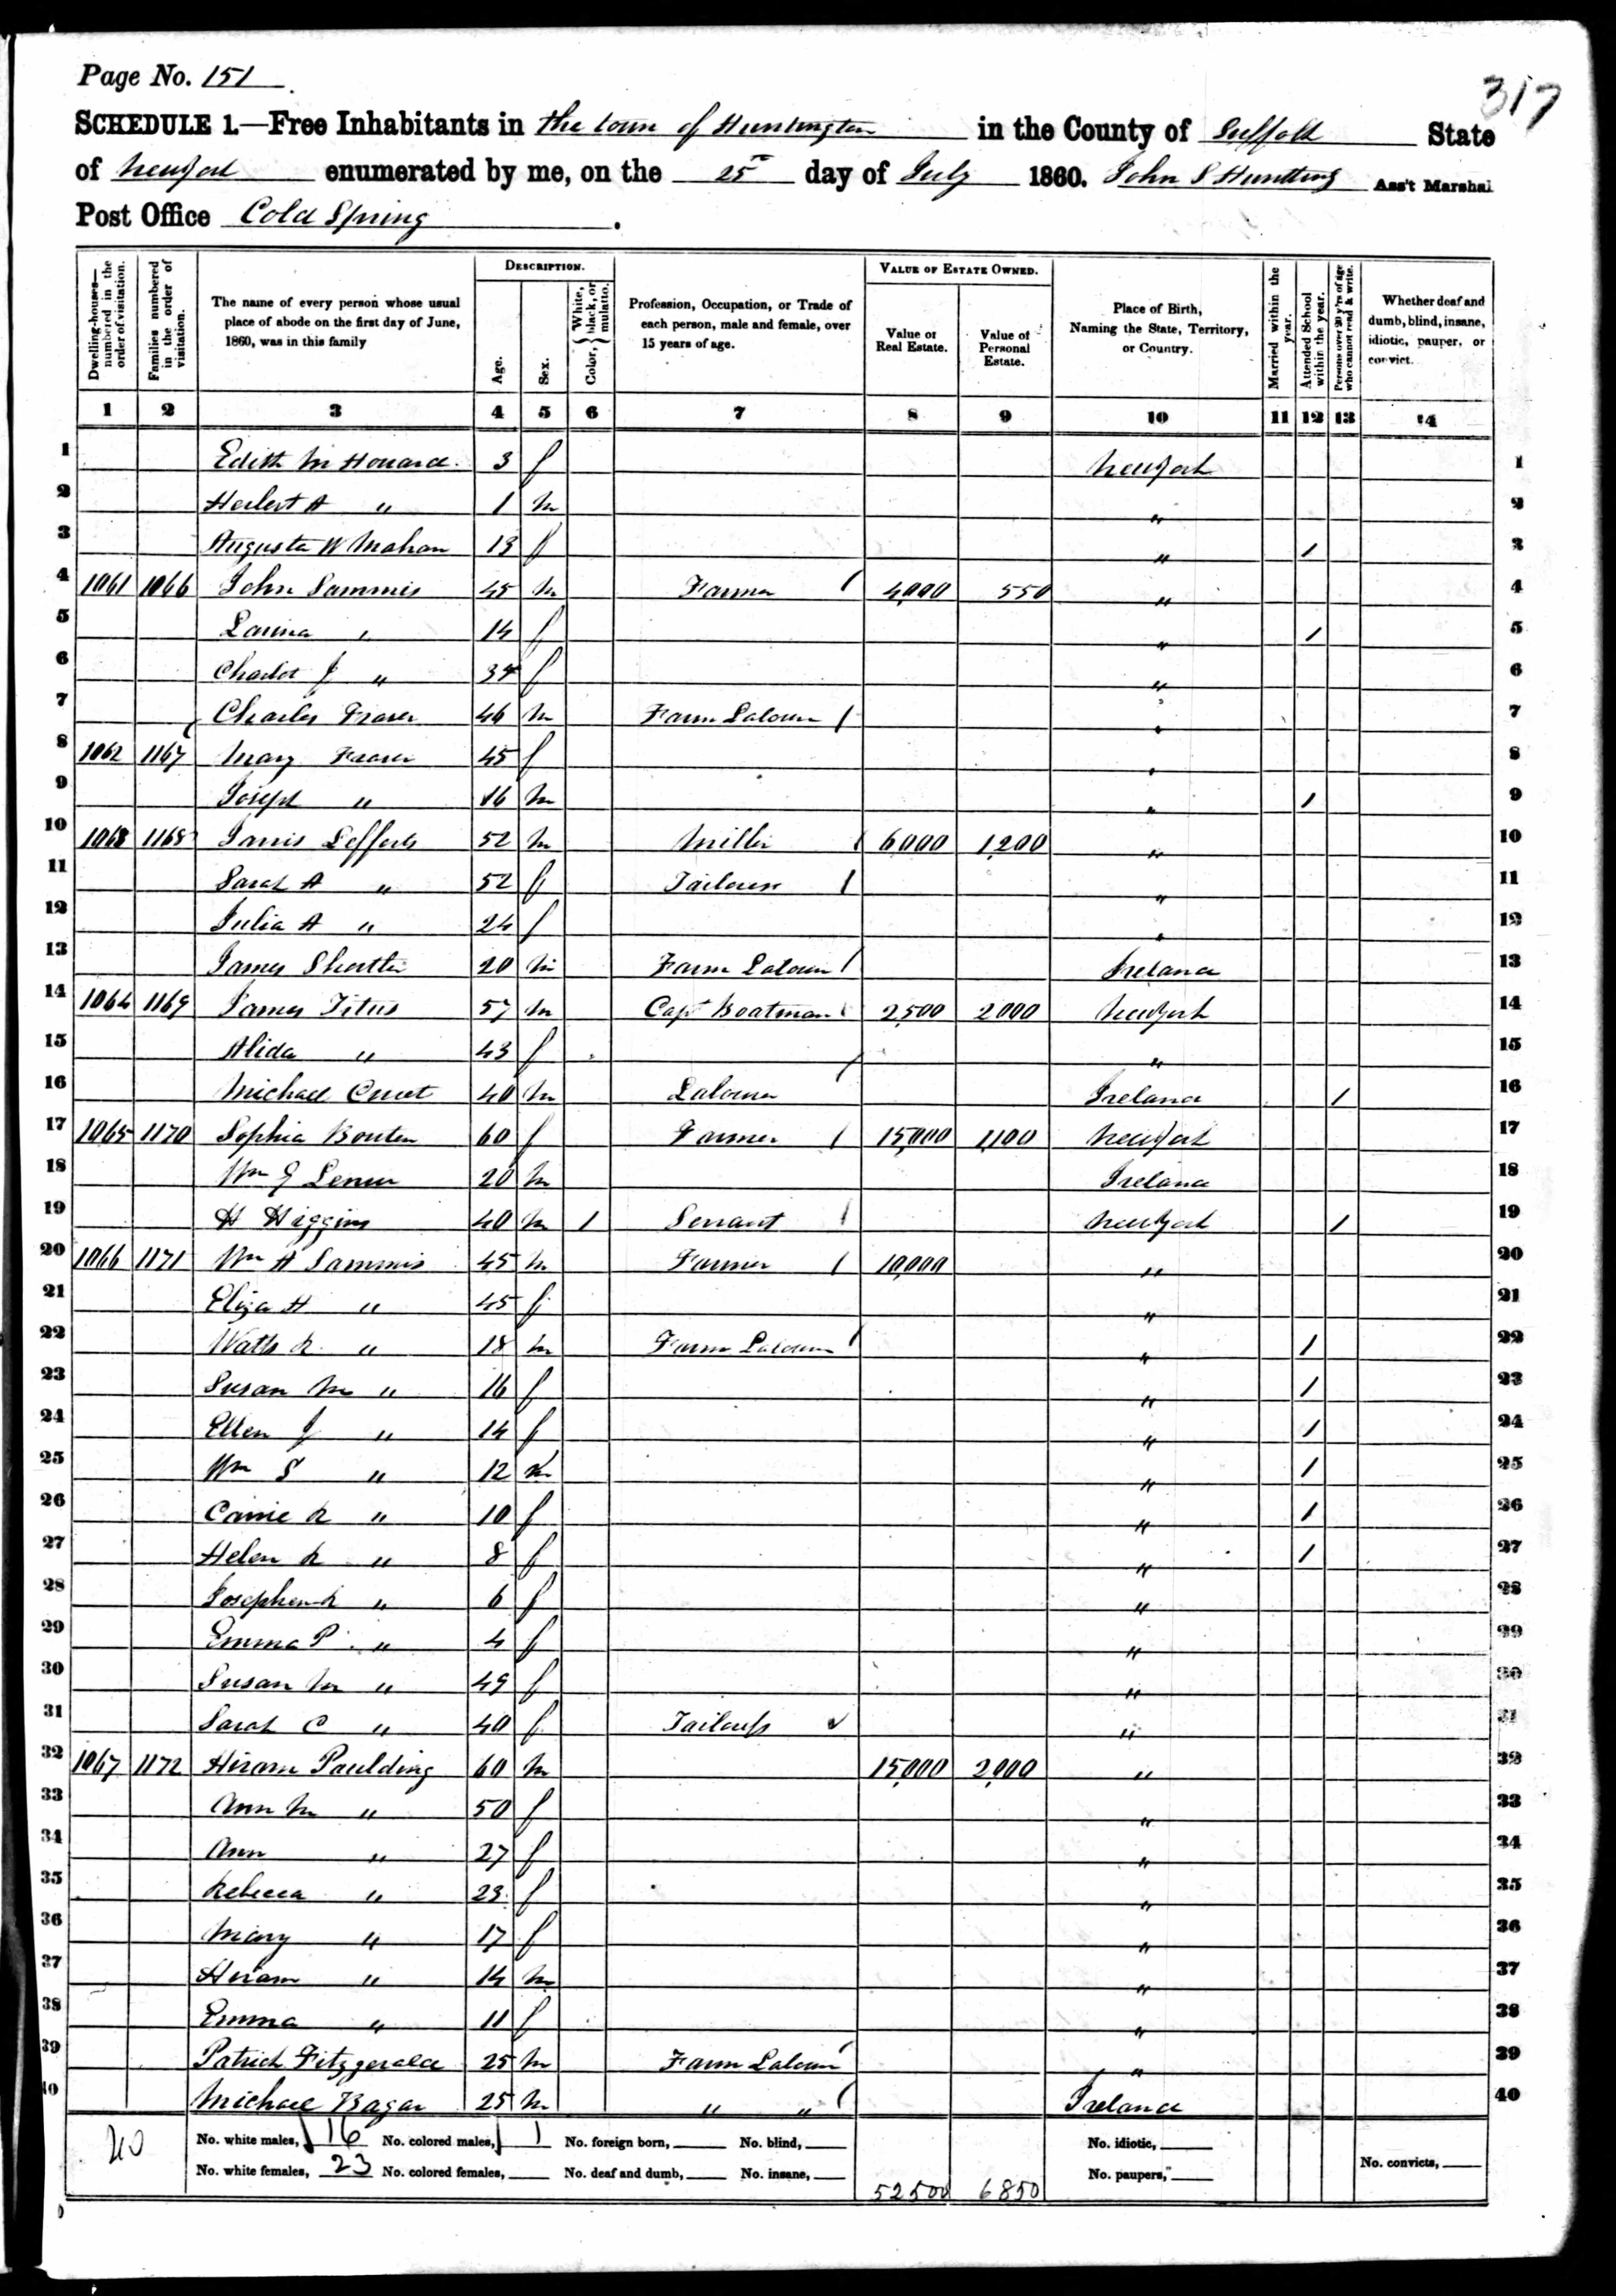 317
Page No. 151
SCHEDULE 1.—Free Inhabitants in the town of Huntington in the County of Suffolk State
of New York enumerated by me, on the 25th day of July 1860. John S Huntting Ass't Marshal
Post Office Cold Spring.
Dwelling-houses—numbered in the order of visitation.
Families numbered in the order of visitation.
The name of every person whose usual place of abode on the first day of June, 1860, was in this family
DESCRIPTION.
Age.
Sex.
Color, { White, black, or mulatto.
Profession, Occupation, or Trade of each person, male and female, over 15 years of age.
VALUE OF ESTATE OWNED.
Value of Real Estate.
Value of Personal Estate.
Place of Birth, Naming the State, Territory, or Country.
Married within the year.
Attended School within the year.
Persons over 20 y'rs of age who cannot read & write.
Whether deaf and dumb, blind, insane, idiotic, pauper, or convict.
1 2 3 4 5 6 7 8 9 10 11 12 13 14
1 Edith M Howard 3 f New York 1
2 Herbert A " 1 m " 2
3 Augusta W Mahan 13 f " / 3
4 1061 1066 John Sammis 45 m Farmer / 4,000 550 " 4
5 " 14 f " / 5
6 Charlot J " 34 f " 6
7 Charles Fraser 46 m Farm Laborer / " 7
8 1062 1167 Mary Fraser 45 f " 8
9 Joseph " 16 m " / 9
10 1063 1168 Lefferts 52 m Miller / 6,000 1,200 " 10
11 Sarah A " 52 f Tailoress / " 11
12 Julia A " 24 f " 12
13 James 20 m Farm Laborer / Ireland 13
14 1064 1169 James Titus 57 m Capt Boatman / 2,500 2,000 New York 14
15 Alida " 43 f " 15
16 Michael 40 m Laborer / Ireland / 16
17 1065 1170 Sophia 60 f Farmer / 15,000 1,100 New York 17
18 Wm 20 m Ireland 18
19 H Higgins 40 m 1 Servant / New York / 19
20 1066 1171 Wm H Sammis 45 m Farmer / 10,000 " 20
21 Eliza H " 45 f " 21
22 Watts R " 18 m Farm Laborer / " / 22
23 Susan M " 16 f " / 23
24 Ellen J " 14 f " / 24
25 Wm S " 12 m " / 25
26 Carrie R " 10 f " / 26
27 Helen R " " 8 f " / 27
28 Josephen R " 6 f " 28
29 Emma P " 4 f " 29
30 Susan M " 49 f " 30
31 Sarah C " 40 f Tailoress " 31
32 1067 1172 Hiram Paulding 60 m 15,000 2,000 " 32
33 Ann M " 50 f " 33
34 Ann " 27 f " 34
35 Rebecca " 23 f " 35
36 Mary " 17 f " 36
37 Hiram " 14 m " 37
38 Emma " 11 f " 38
39 Patrick Fitzgerald 25 m Farm Laborer / " 39
40 Michael 25 m " " / Ireland 40
40
No. white males, 16 No. colored males, 1 No. foreign born, No. blind, No. idiotic,
No. white females, 23 No. colored females, No. deaf and dumb, No. insane, No. paupers, No. convicts,
52500 6850